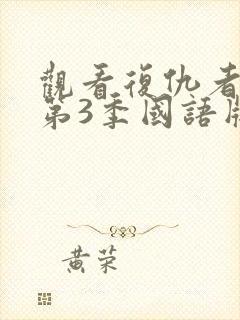 觀看復仇者
第3季國語
黃荣